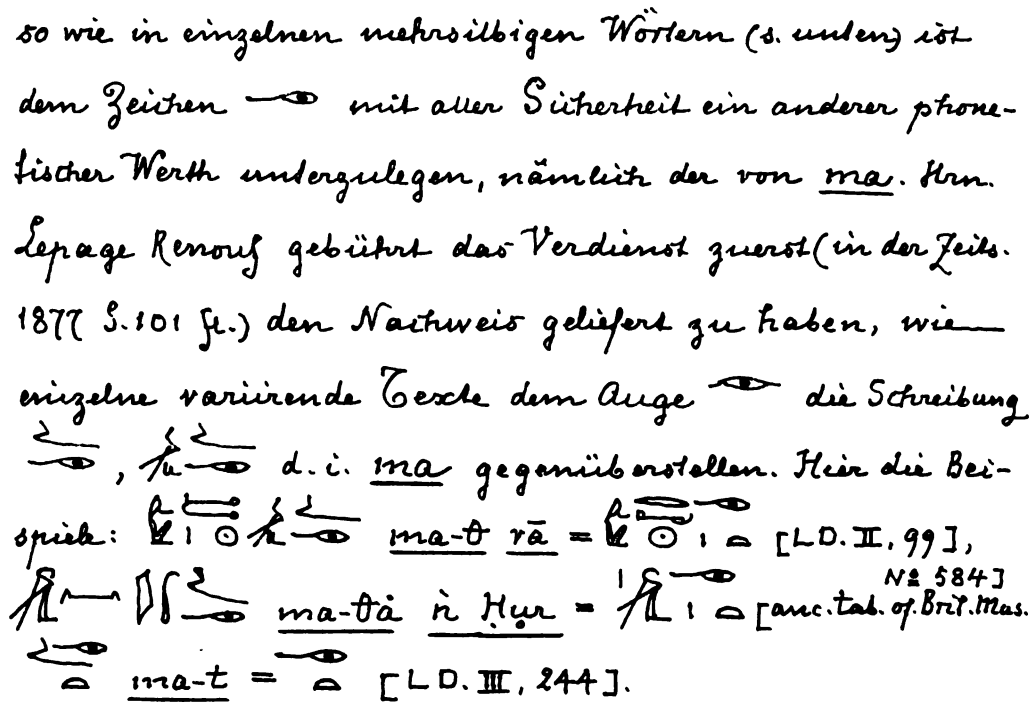 so wie in einzelnen mehrsilbigen Wörtern (s. unten) ist
dem Zeichen 𓁹 mit aller Sicherheit ein anderer phone-
tischer Werth unterzulegen, nämlich der von ma. Hrn.
Lepage Renouf gebührt das Verdienst zuerst (in der Zeits.
1877 S. 101 fl.) den Nachweis geliefert zu haben, wie
einzelne variirende Texte dem Auge 𓁹 die Schreibung
, d. i. ma gegenüberstellen. Hier die Bei-
spiele: ma-θ rā = [LD. II, 99],
ma-θȧ ṅ Ḥur = [anc. tab. of. Brit. Mus. № 584]
ma-t = [LD. III, 244].